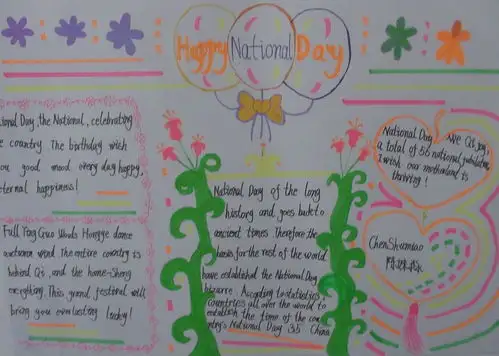 Happy National Day
ional Day, the National, celebrating
e country The birthday with
ou good mood every day happy,
ternal happiness!
Full Ying Guo Wends Hongye dance
autumn wind. The entire country is
behind Qi, and the home-Shong
everything. This grand festival will
bring you everlasting lucky!
National Day of the long
history and, goes back to
ancient times Therefore the
basis for the rest of the world
have established the National Day
bizarre. According to statistics
countries all over the world to
establish the time of the cou
ntry's National Day 35 China
National Day We Qi joy,
a total of 56 national jubilation
I wish our motherland is
thriving!
Chen Shumiao